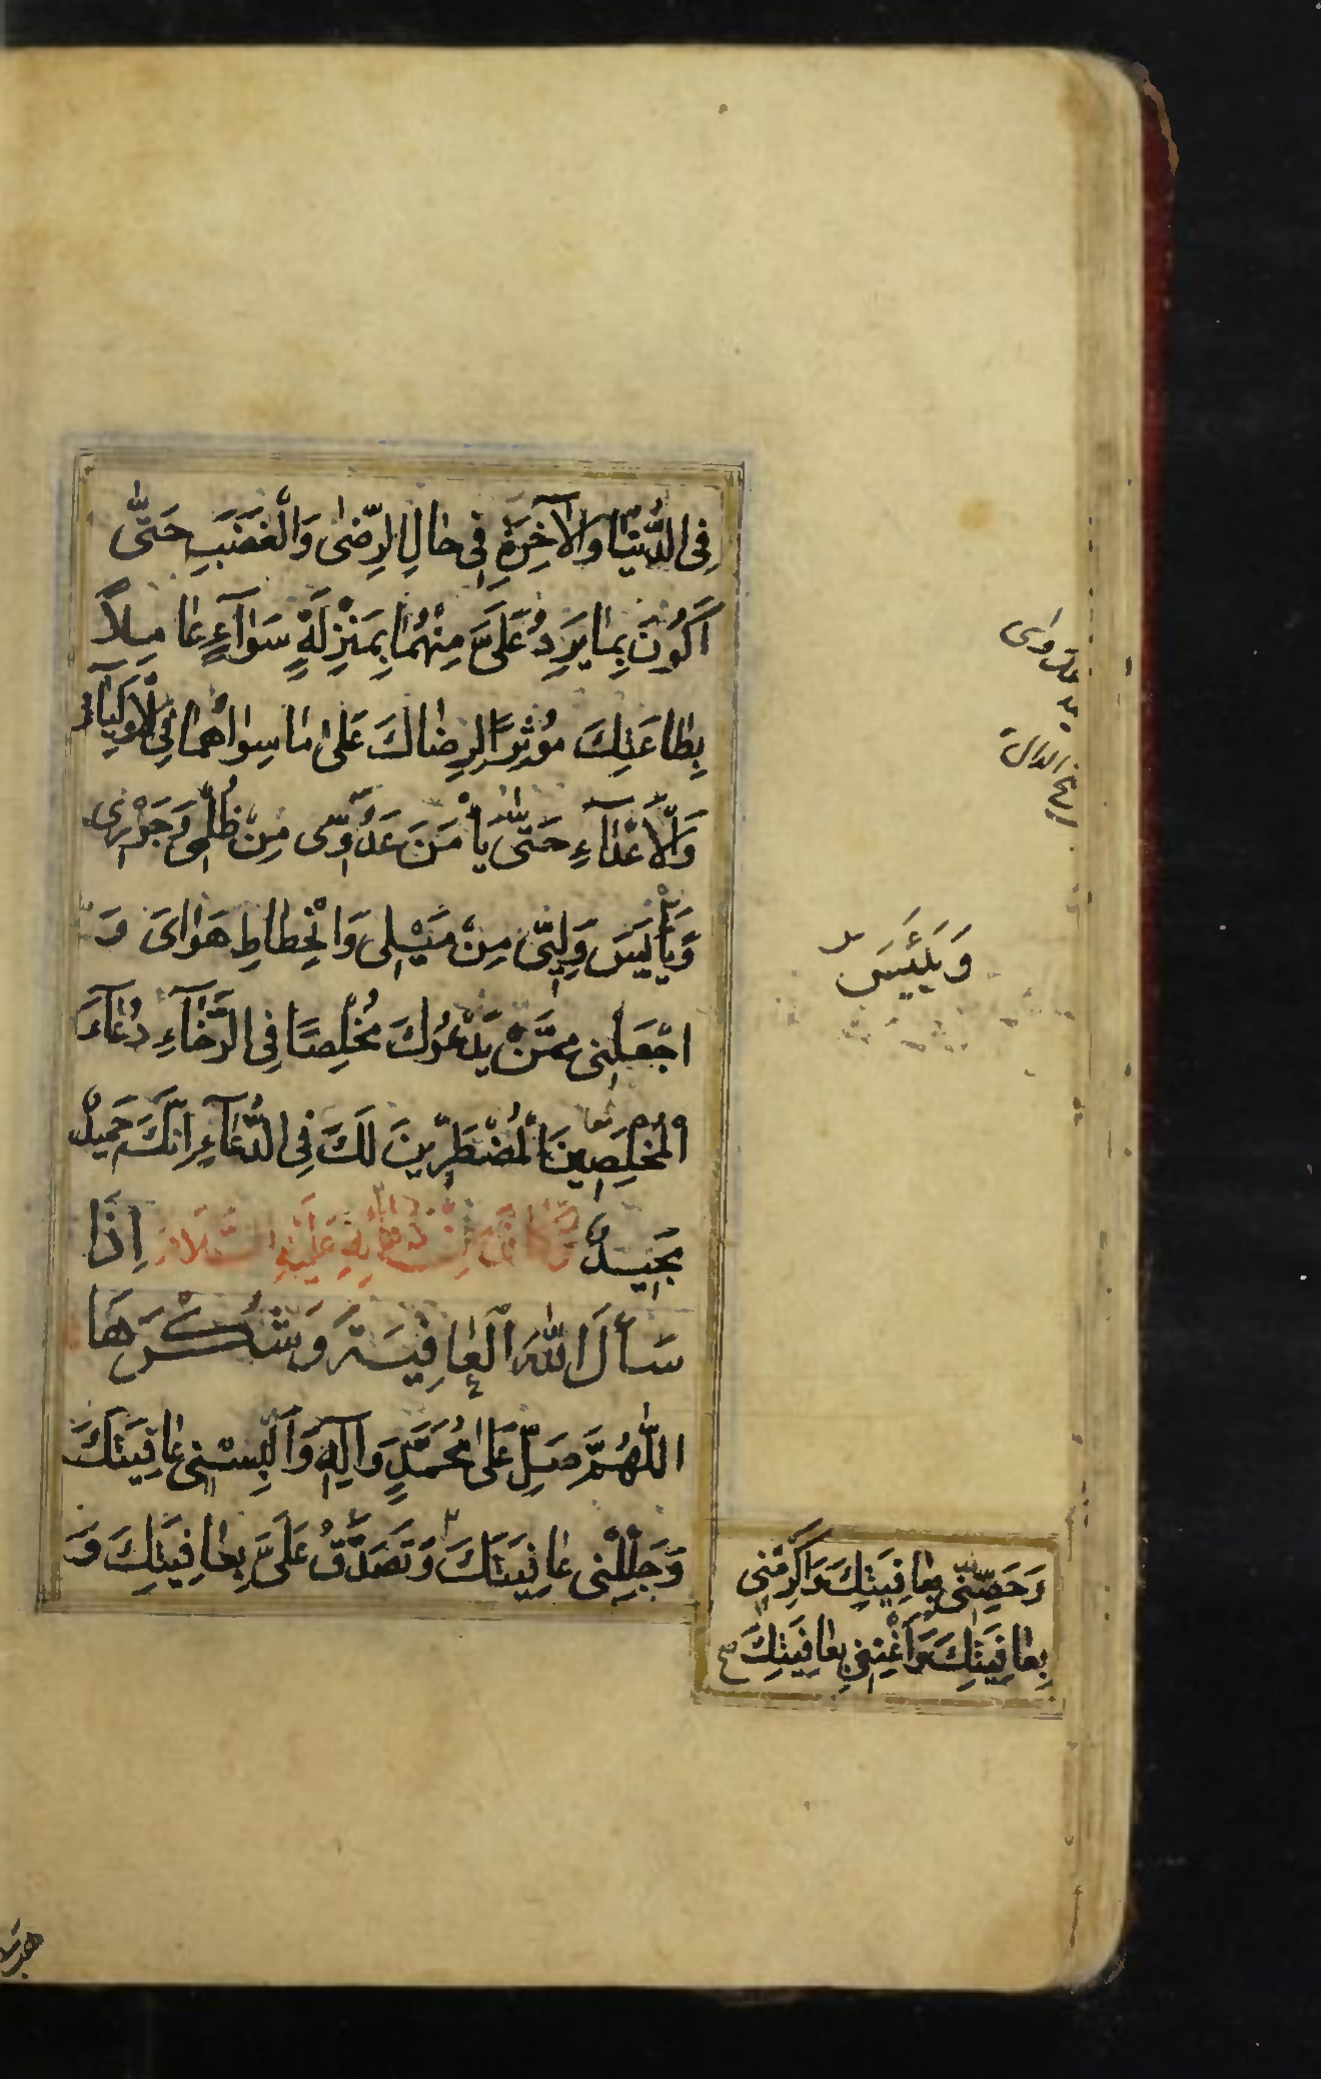 فِى الدُّنْيٰا وَالْآخِرَةِ فِى حٰالِ الرِّضٰى وَالْغَضَبِ حَتّٰى
اَكُونَ بِمٰا يَرِدُ عَلَىَّ مِنْهُمٰا بِمَنْزِلَةٍ سَوٰآءٍ عٰامِلًا
بِطٰاعَتِكَ مُؤْثِرًا لِرِضٰاكَ عَلىٰ مٰا سِوٰاهُمٰا فِى الْاَوْلِيٰآءِ
وَالْاَعْدٰآءِ حَتّٰى يَأْمَنَ عَدُوّى مِنْ ظُلْمى وَجَوْرى
وَيَأْيَسَ وَلِيّى مِنْ مَيْلى وَانْحِطٰاطِ هَوٰاىَ وَ
اجْعَلْنى مِمَّنْ يَدْعُوكَ مُخْلِصًا فِى الرَّخٰآءِ دُعٰآءَ
الْمُخْلِصينَ الْمُضْطَرّينَ لَكَ فِى الدُّعٰآءِ اِنَّكَ حَميدٌ
مَجيدٌ وَكٰانَ مِنْ دُعٰائِهِ عَلَيْهِ السَّلَامُ اِذٰا
سَأَلَ اللّٰهَ الْعٰافِيَةَ وَشُكْرَهٰا
اَللّٰهُمَّ صَلِّ عَلىٰ مُحَمَّدٍ وَآلِهِ وَاَلْبِسْنى عٰافِيَتَكَ
وَجَلِّلْنى عٰافِيَتَكَ وَتَصَدَّقْ عَلَىَّ بِعٰافِيَتِكَ وَ
وَيَئِسَ
وَحَصِّنّى بِعٰافِيَتِكَ وَاَكْرِمْنى
بِعٰافِيَتِكَ وَاَغْنِنى بِعٰافِيَتِكَ